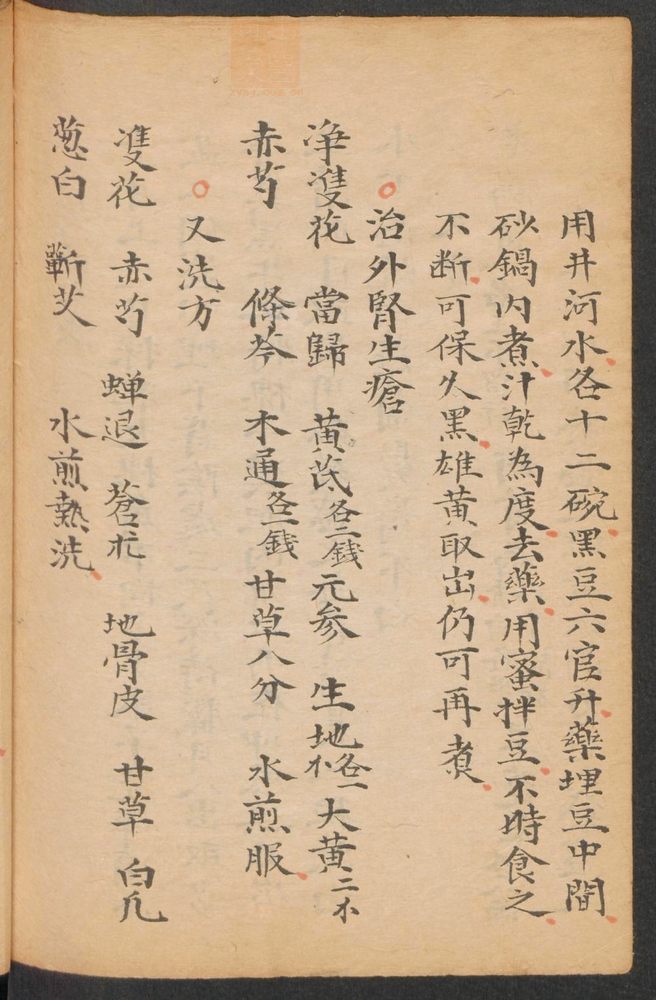 用井河水各十二碗黑豆六官升藥埋豆中間
砂鍋内煮汁乾為度去藥用蜜拌豆不時食之
不断可保久黑雄黄取出仍可再煮
○治外腎生瘡
淨雙花 當歸 黄芪各二錢 元参 生地各一个 大黄二个
赤芍 條芩 木通各一錢 甘草八分 水煎服
○又洗方
雙花 赤芍 蝉退 蒼朮 地骨皮 甘草 白凡
葱白 蘄艾 水煎熱洗